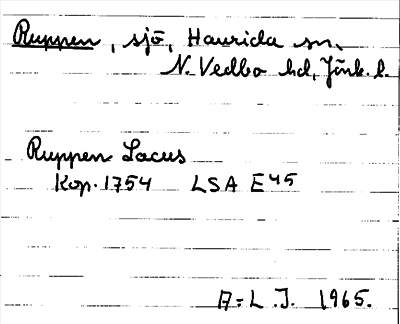 Ruppen, sjö, Haurida sn,
N. Vedbo hd, Jönk. l.
Ruppen Lacus
Kop. 1754 LSA E45
A=L.J. 1965.